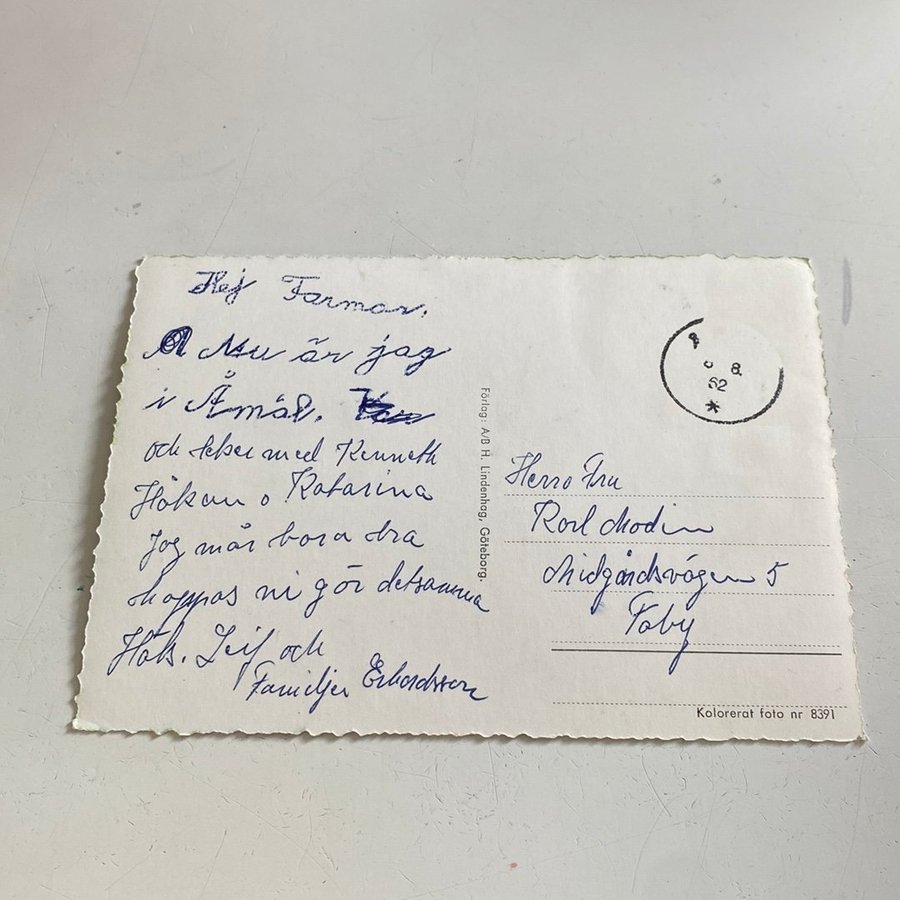 Hej Farmor.
Nu är jag
i Åmål.
och leker med Kenneth
Håkan o Katarina
Jag mår bara bra
hoppas ni gör detsamma
Häls. Leif och
Familjen
Förlag: A/B H. Lindenhag, Göteborg.
8
62
Herr o Fru
Modin
Midgårdsvägen 5
Täby
Kolorerat foto nr 8391